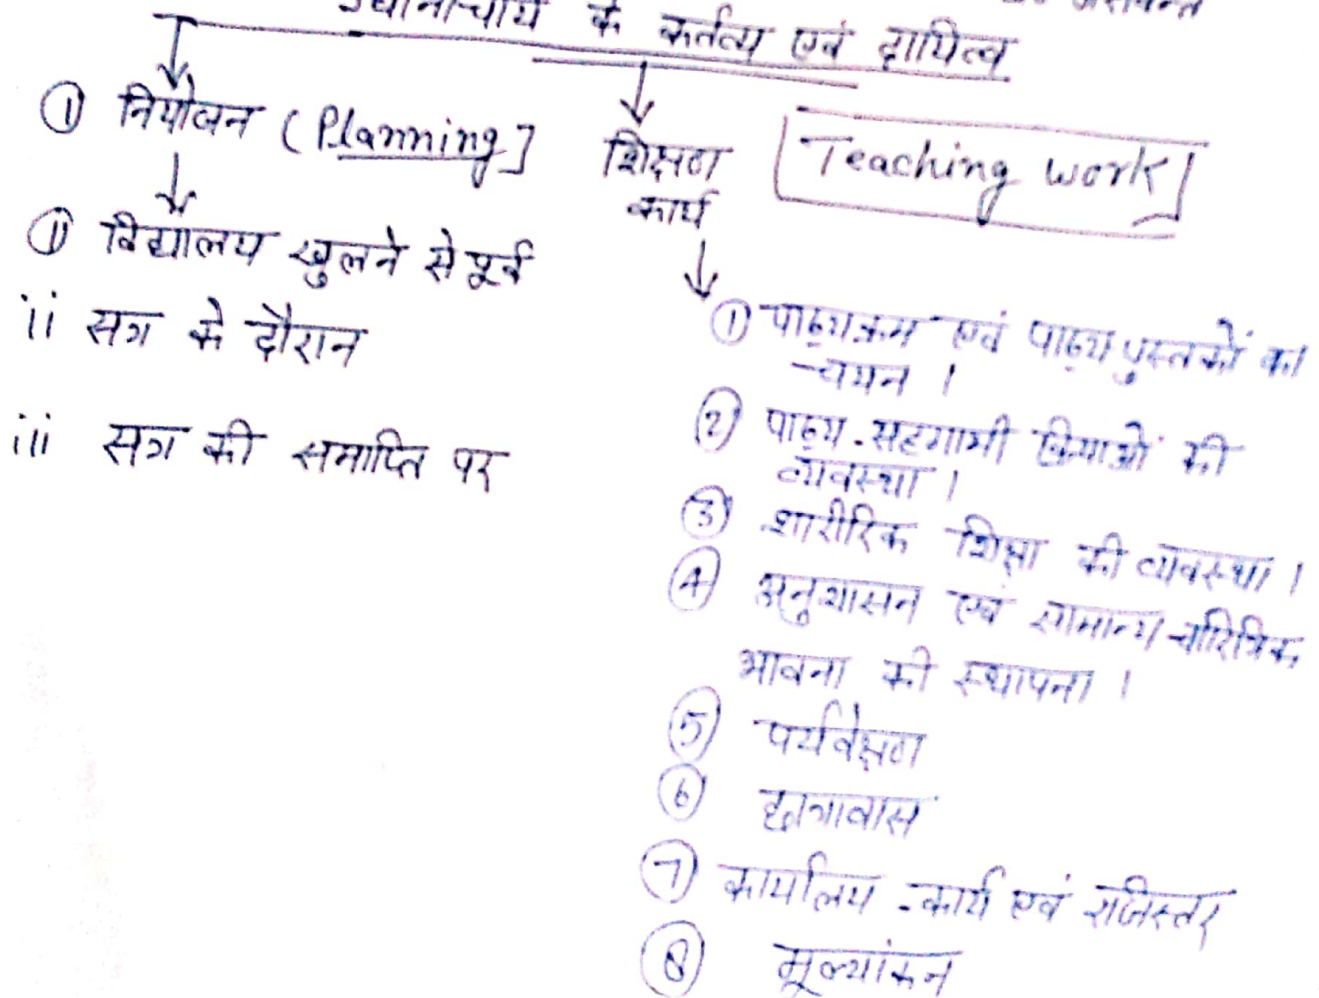 प्रधानाचार्य के कर्तव्य एवं दायित्व
① नियोजन (Planning]
शिक्षण [Teaching work]
कार्य
① विद्यालय खुलने से पूर्व
ii सत्र के दौरान
iii सत्र की समाप्ति पर
① पाठ्यक्रम एवं पाठ्यपुस्तकों का
चयन ।
② पाठ्य-सहगामी क्रियाओं की
व्यवस्था ।
③ शारीरिक शिक्षा की व्यवस्था ।
④ अनुशासन एवं सामान्य चारित्रिक
भावना की स्थापना ।
⑤ पर्यवेक्षण
⑥ छात्रावास
⑦ कार्यालय-कार्य एवं रजिस्टर
⑧ मूल्यांकन